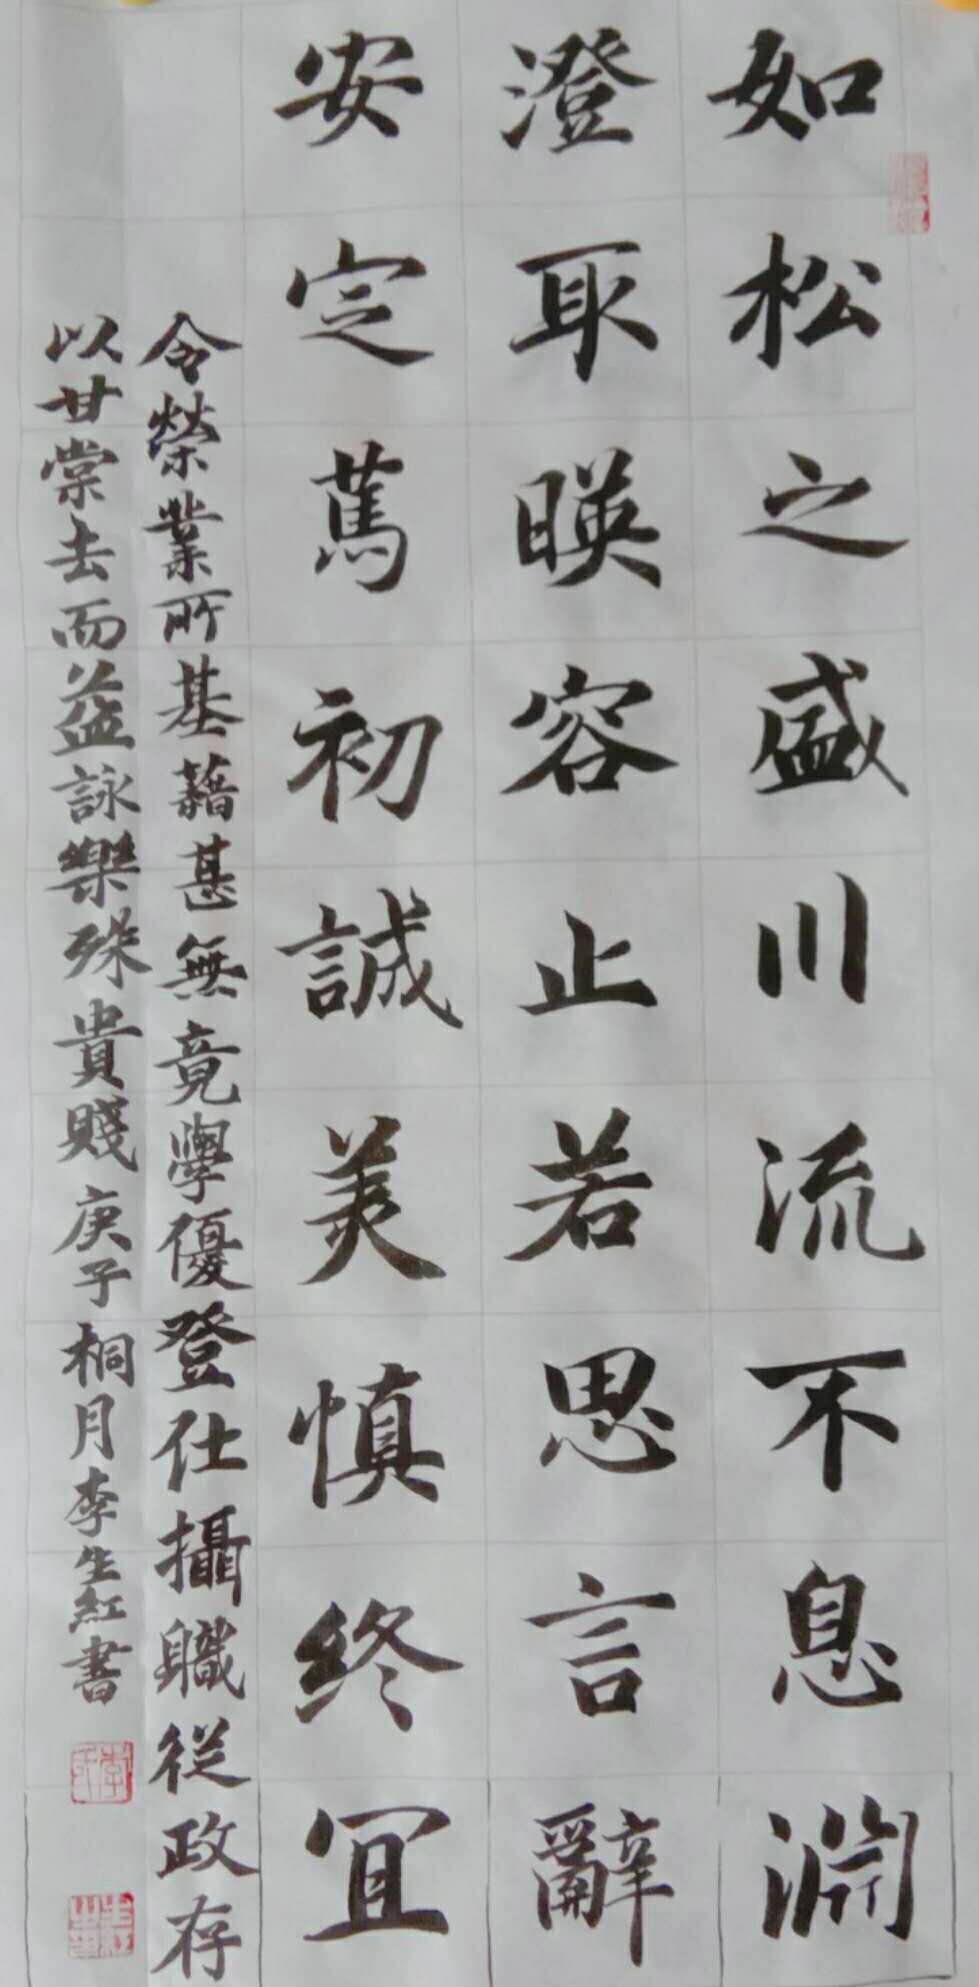 如松之盛川流不息淵
澄取暎容止若思言辭
安定篤初誠美慎終宜
令榮業所基藉甚無竟學優登仕攝職從政存
以甘棠去而益詠樂殊貴賤庚子桐月李生紅書